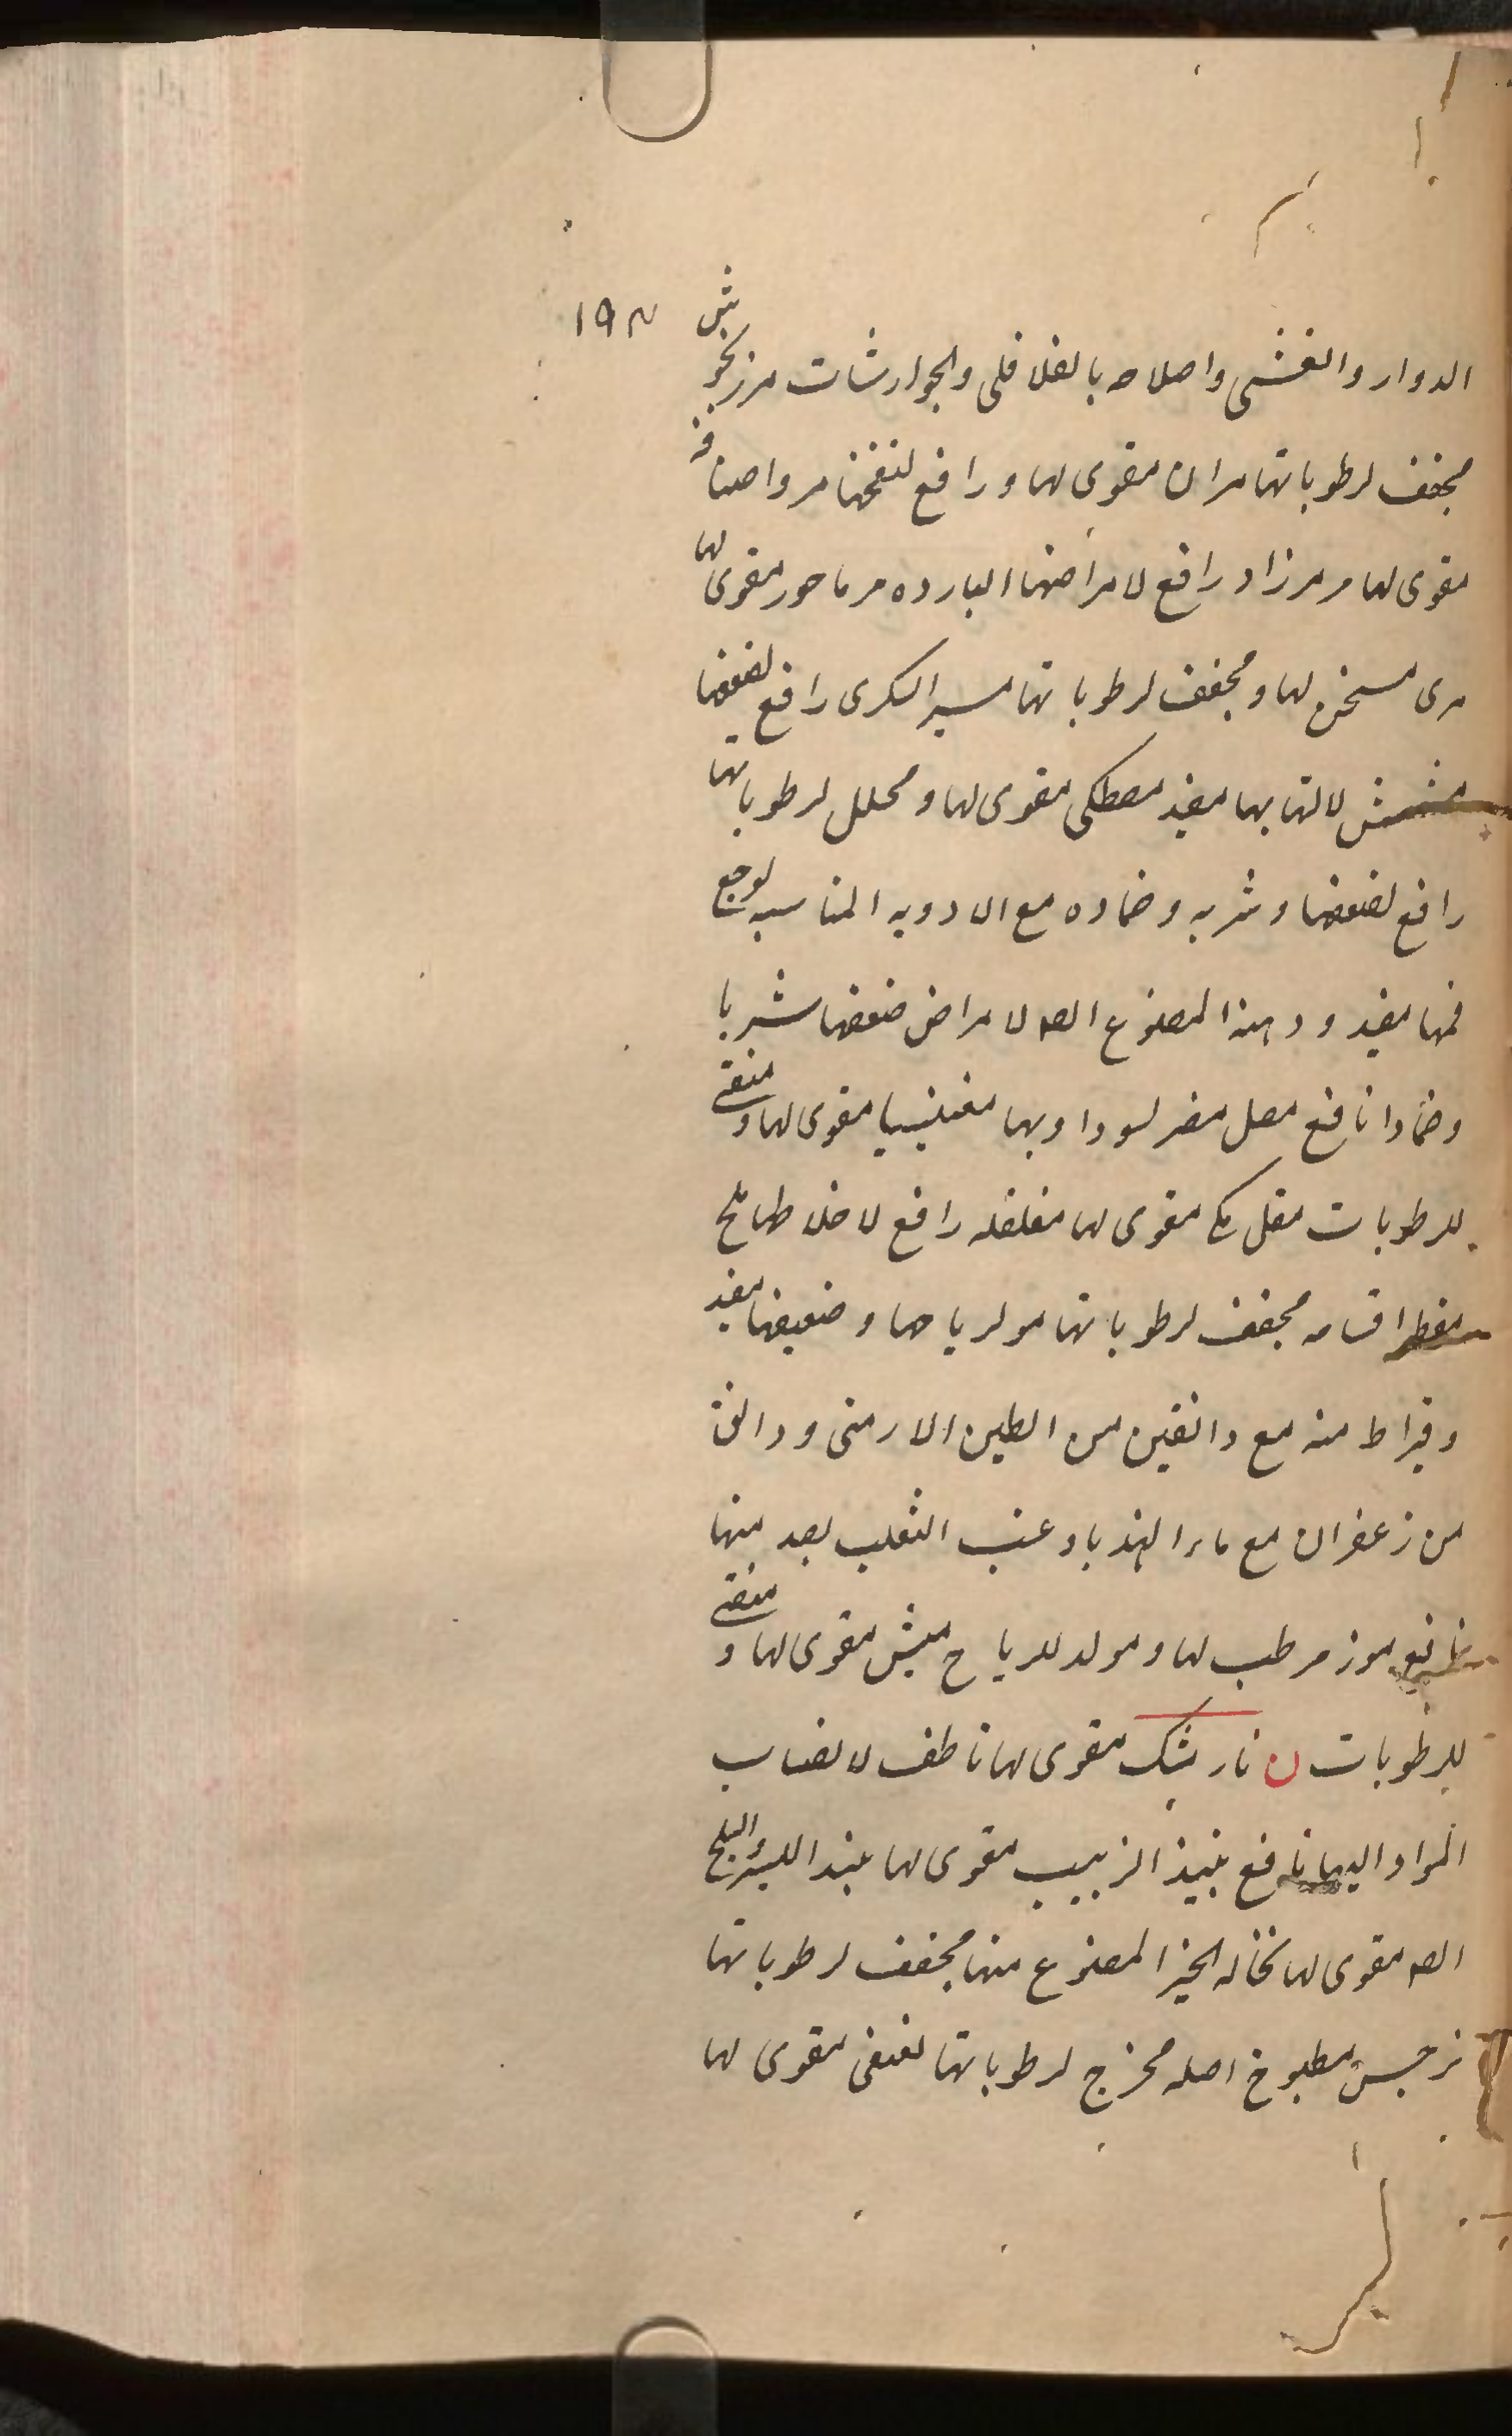 ١٩٣
الدوار والغشى واصلاحه بالفلافلى والجوارشات مرزنجوش
مجفف لرطوباتها مران مقوى لها و رافع لنفخها مر واصنافه
مقوى لها مرمرزاد رافع لامراضها البارده مرماحور مقوى لها
مرى مسخن لها و مجفف لرطوباتها مسير السكرى رافع لضعفها
مشمش لالتهابها مفيد مصطكى مقوى لها و محلل لرطوباتها
رافع لضعفها و شربه و ضماده مع الادويه المناسبه لوجع
فمها مفيد و دهنه المصنوع الصه لامراض ضعفها شربا
وضمادا نافع مصل مضر لسوداويها مغنيسيا مقوى لها و منقى
للرطوبات مقل مكى مقوى لها مفلفله رافع لاخلاطها ملح
اقسامه مجفف لرطوباتها مولرياحها و ضعيفها مفيد
وقيراط منه مع دانقين من الطين الارمنى و دانق
من زعفران مع ماء الهندبا و عنب الثعلب بعد منها
نافع موز مرطب لها و مولد للرياح ميش مقوى لها و منقى
للرطوبات ن نار مشك مقوى لها ناطف لانصباب
المواد اليها نافع نبيذ الزبيب مقوى لها نبيذ البسر والبلح
الصه مقوى لها نخاله الخبز المصنوع منها مجفف لرطوباتها
نرجس مطبوخ اصله مخرج لرطوباتها نعنع مقوى لها